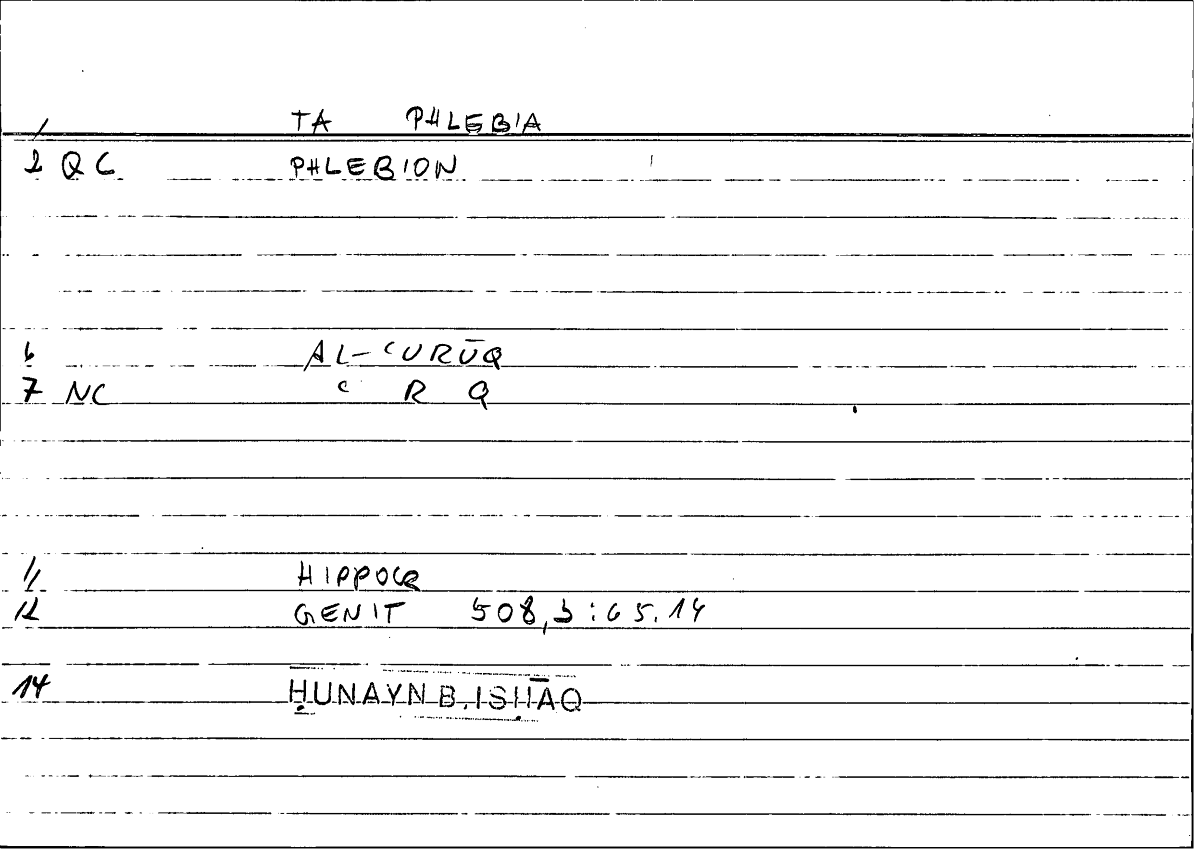 1 TA PHLEBIA
2 QC PHLEBION
6 AL-ʿURŪQ
7 NC ʿ R Q
11 HIPPOCR
12 GENIT 508,3:65.14
14 ḤUNAYN B. ISḤĀQ